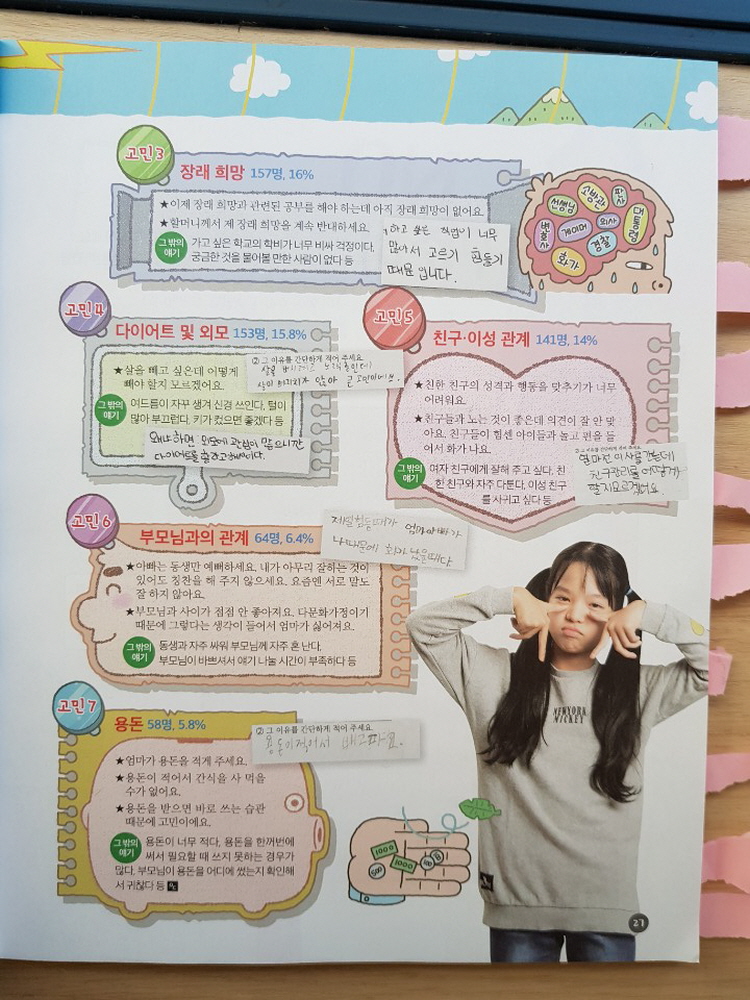 고민3
장래 희망 157명, 16%
★이제 장래 희망과 관련된 공부를 해야 하는데 아직 장래 희망이 없어요.
★할머니께서 제 장래 희망을 계속 반대하세요.
그 밖의 얘기
가고 싶은 학교의 학비가 너무 비싸 걱정이다.
궁금한 것을 물어볼 만한 사람이 없다 등
하고 싶은 직업이 너무
많아서 고르기 힘들기
때문 입니다.
선생님
소방관
판사
변호사
게이머
의사
대통령
경찰
화가
고민4
다이어트 및 외모 153명, 15.8%
② 그 이유를 간단하게 적어 주세요.
★살을 빼고 싶은데 어떻게
빼야 할지 모르겠어요.
그 밖의 얘기
여드름이 자꾸 생겨 신경 쓰인다. 털이
많아 부끄럽다. 키가 컸으면 좋겠다 등
왜냐하면 외모에 관심이 많으니깐
고민5
친구·이성 관계 141명, 14%
★친한 친구의 성격과 행동을 맞추기가 너무
어려워요.
★친구들과 노는 것이 좋은데 의견이 잘 안 맞
아요. 친구들이 힘센 아이들과 놀고 편을 들
어서 화가 나요.
그 밖의 얘기
여자 친구에게 잘해 주고 싶다. 친
한 친구와 자주 다툰다. 이성 친구
를 사귀고 싶다 등
얼마전 이사를 갔는데
친구관리를 어떻게
할지모르겠어요.
고민6
부모님과의 관계 64명, 6.4%
제일 힘들때가 엄마아빠가
나때문에 화가 났을때다
★아빠는 동생만 예뻐하세요. 내가 아무리 잘하는 것이
있어도 칭찬을 해 주지 않으세요. 요즘엔 서로 말도
잘 하지 않아요.
★부모님과 사이가 점점 안 좋아져요. 다문화가정이기
때문에 그렇다는 생각이 들어서 엄마가 싫어져요.
그 밖의 얘기
동생과 자주 싸워 부모님께 자주 혼 난다.
부모님이 바쁘셔서 얘기 나눌 시간이 부족하다 등
고민7
용돈 58명, 5.8%
② 그 이유를 간단하게 적어 주세요
용돈이적어서 배고파요.
★엄마가 용돈을 적게 주세요.
★용돈이 적어서 간식을 사 먹을
수가 없어요.
★용돈을 받으면 바로 쓰는 습관
때문에 고민이에요.
그 밖의 얘기
용돈이 너무 적다, 용돈을 한꺼번에
써서 필요할 때 쓰지 못하는 경우가
많다. 부모님이 용돈을 어디에 썼는지 확인해
서 귀찮다 등
1000
1000
500
NEWYORK
MICKEY
27